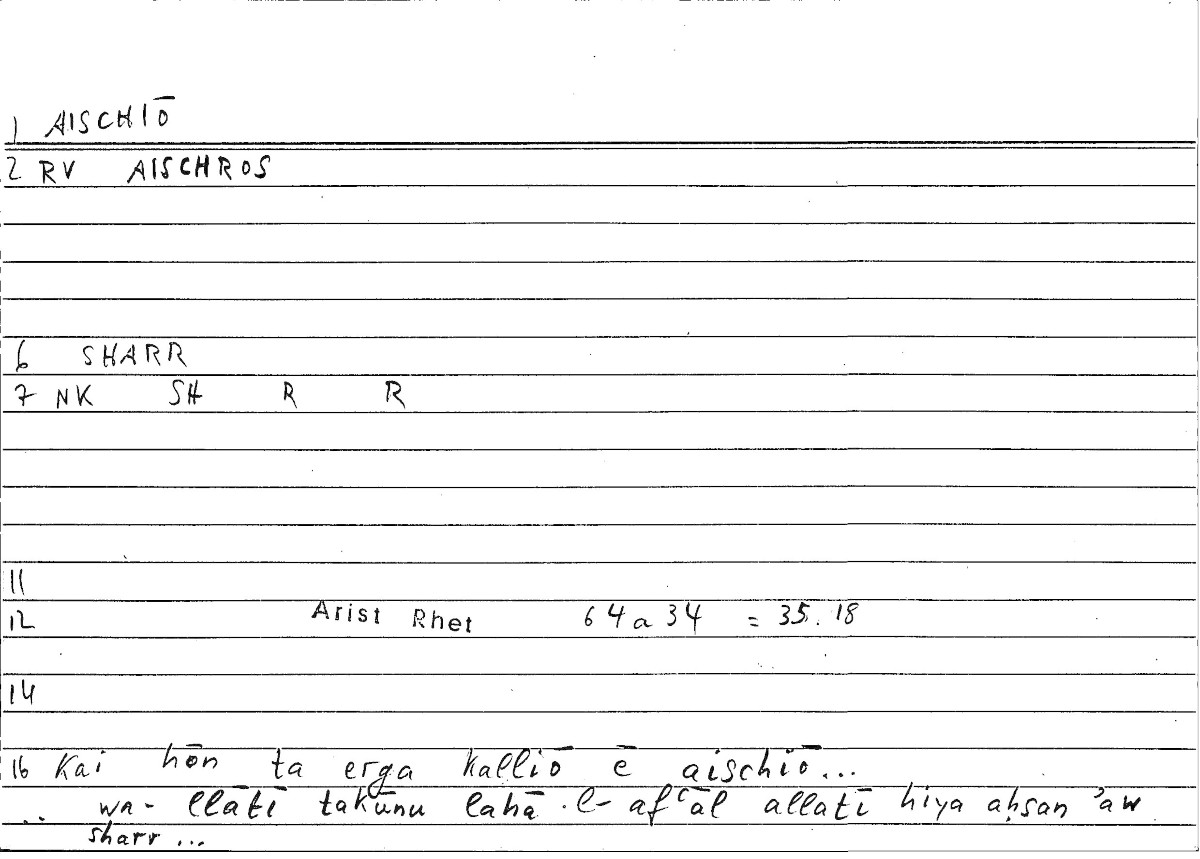 1 AISCHIŌ
2 RV AISCHROS
6 SHARR
7 NK SH R R
11
12 Arist Rhet 64 a 34 = 35.18
14
16 Kai hōn ta erga kalliō ē aischiō...
.. wa- llātī takūnu lahā l- afʿāl allatī hiya aḥsan ʾaw
sharr...